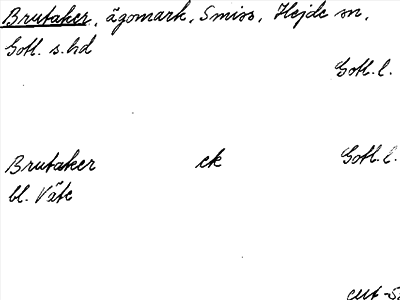 Brutaker, ägomark, Smiss, Hejde sn,
Gotl. s. hd
Gotl. l.
Brutaker ek Gotl. l.
bl. Väte